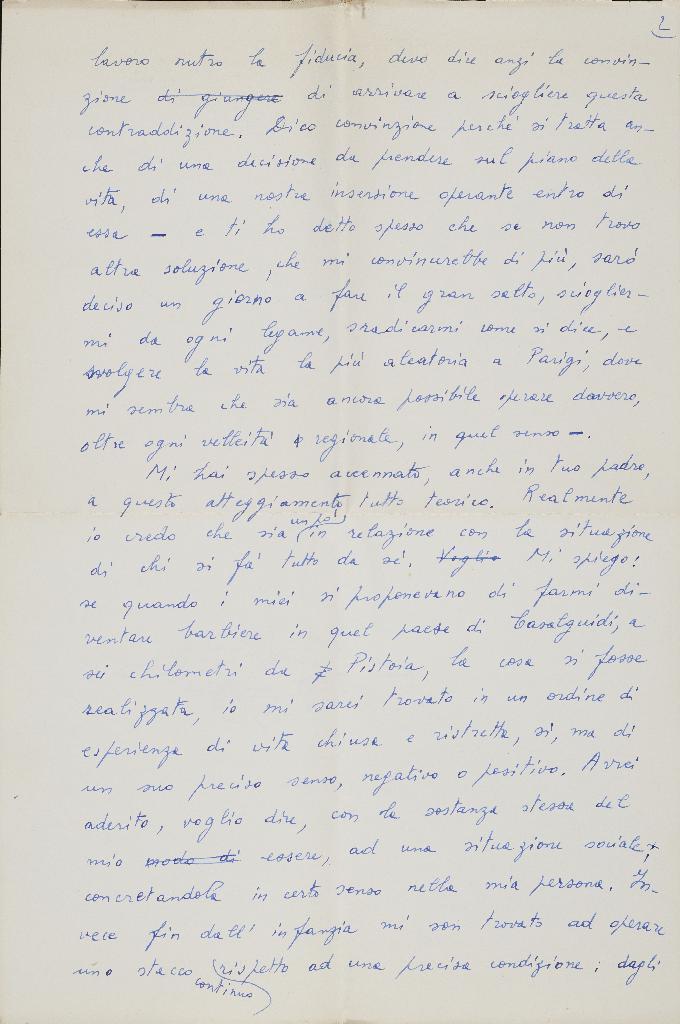 2
lavoro nutro la fiducia, devo dire anzi la convin-
zione di giungere di arrivare a sciogliere questa
contraddizione. Dico convinzione perché si tratta an-
che di una decisione da prendere sul piano della
vita, di una nostra inserzione operante entro di
essa — e ti ho detto spesso che se non trovo
altra soluzione, che mi convincerebbe di più, sarò
deciso un giorno a fare il gran salto, scioglier-
mi da ogni legame, sradicarmi come si dice, e
svolgere la vita la più aleatoria a Parigi, dove
mi sembra che sia ancora possibile operare davvero,
oltre ogni velleità regionale, in quel senso —.
Mi hai spesso accennato, anche in tuo padre,
a questo atteggiamento tutto teorico. Realmente
un po'
io credo che sia in relazione con la situazione
di chi si fa tutto da sé. Voglio Mi spiego:
se quando i miei si proponevano di farmi di-
ventare barbiere in quel paese di Casalguidi, a
sei chilometri da Pistoia, la cosa si fosse
realizzata, io mi sarei trovato in un ordine di
esperienza di vita chiusa e ristretta, sì, ma di
un suo preciso senso, negativo o positivo. Avrei
aderito, voglio dire, con la sostanza stessa del
mio modo di essere, ad una situazione sociale,
concretandola in certo senso nella mia persona. In-
vece fin dall'infanzia mi son trovato ad operare
uno stacco rispetto ad una precisa condizione; dagli
continuo